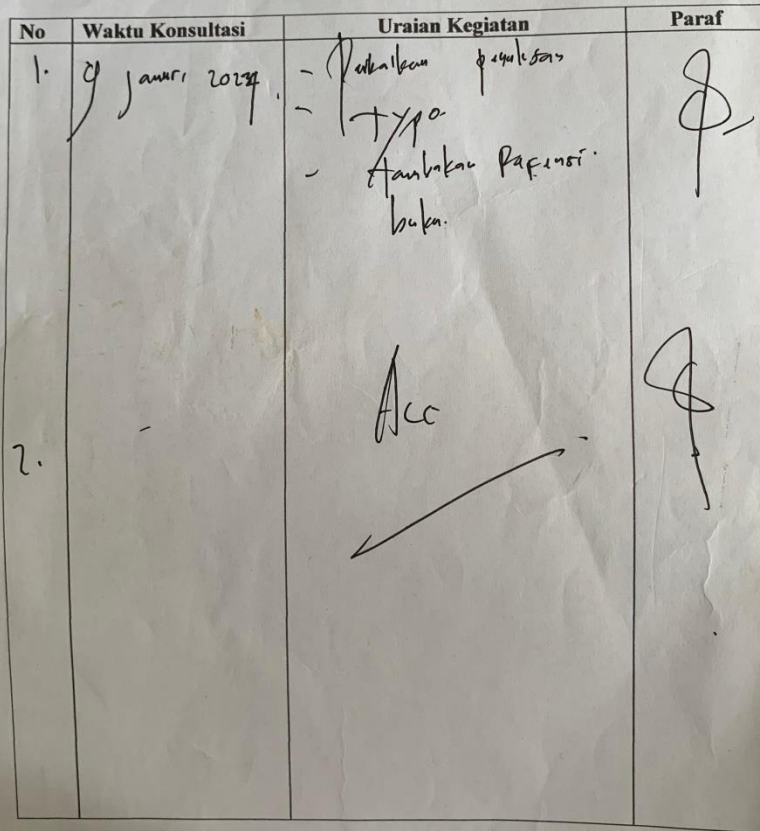 No Waktu Konsultasi Uraian Kegiatan Paraf
1. 9 Januri 2024. - Perbaikan penulisan
- typo.
- tambahkan Refensi.
buku.
2. - Acc